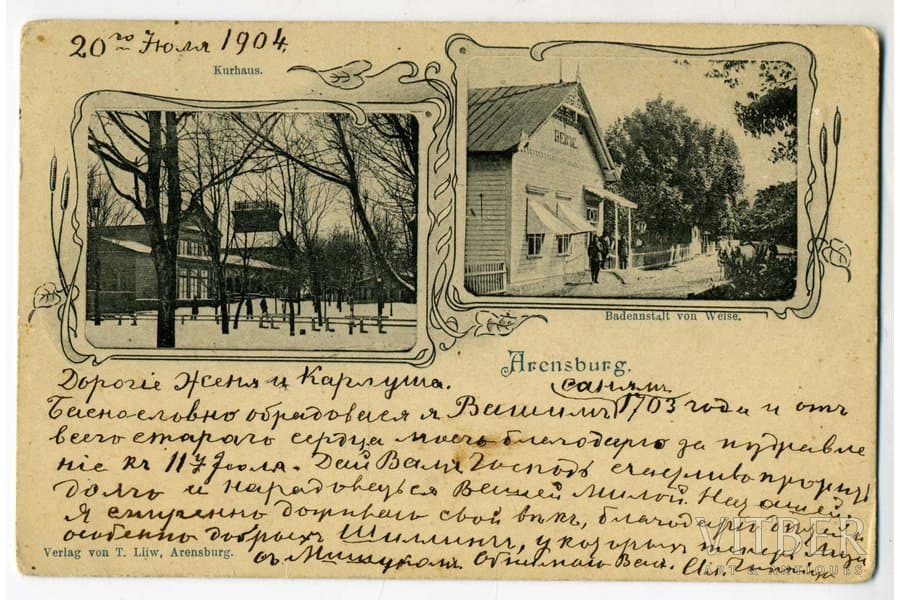 20го Июля 1904
Kurhaus.
Badeanstalt von Weise.
Arensburg.
Дорогіе Женя и Карлуша.
Баснословно обрадовался я Вашимъ санямъ 1703 года и отъ
всего стараго сердца моего благодарю за поздравле
ніе къ 11 Іюля. Дай Вамъ Господь счастливо
и нарадоваться Вашей милой
Я смиренно доживаю свой вѣкъ,
особенно добрыхъ Шиллинг, у которыхъ теперь
съ Мишукомъ Обнимаю Васъ.
Verlag von T. Liiw, Arensburg.
VITBER
ART & ANTIQUES